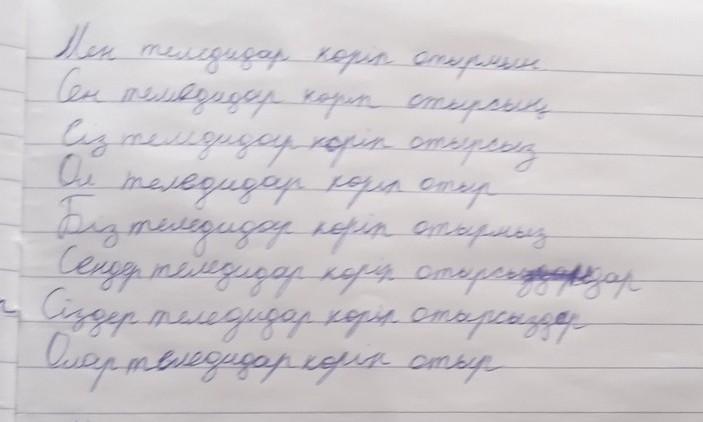 Мен теледидар көріп отырмын
Сен теледидар көріп отырсың
Сіз теледидар көріп отырсыз
Ол теледидар көріп отыр
Біз теледидар көріп отырмыз
Сендер теледидар көріп
Сіздер теледидар көріп отырсыздар
Олар теледидар көріп отыр